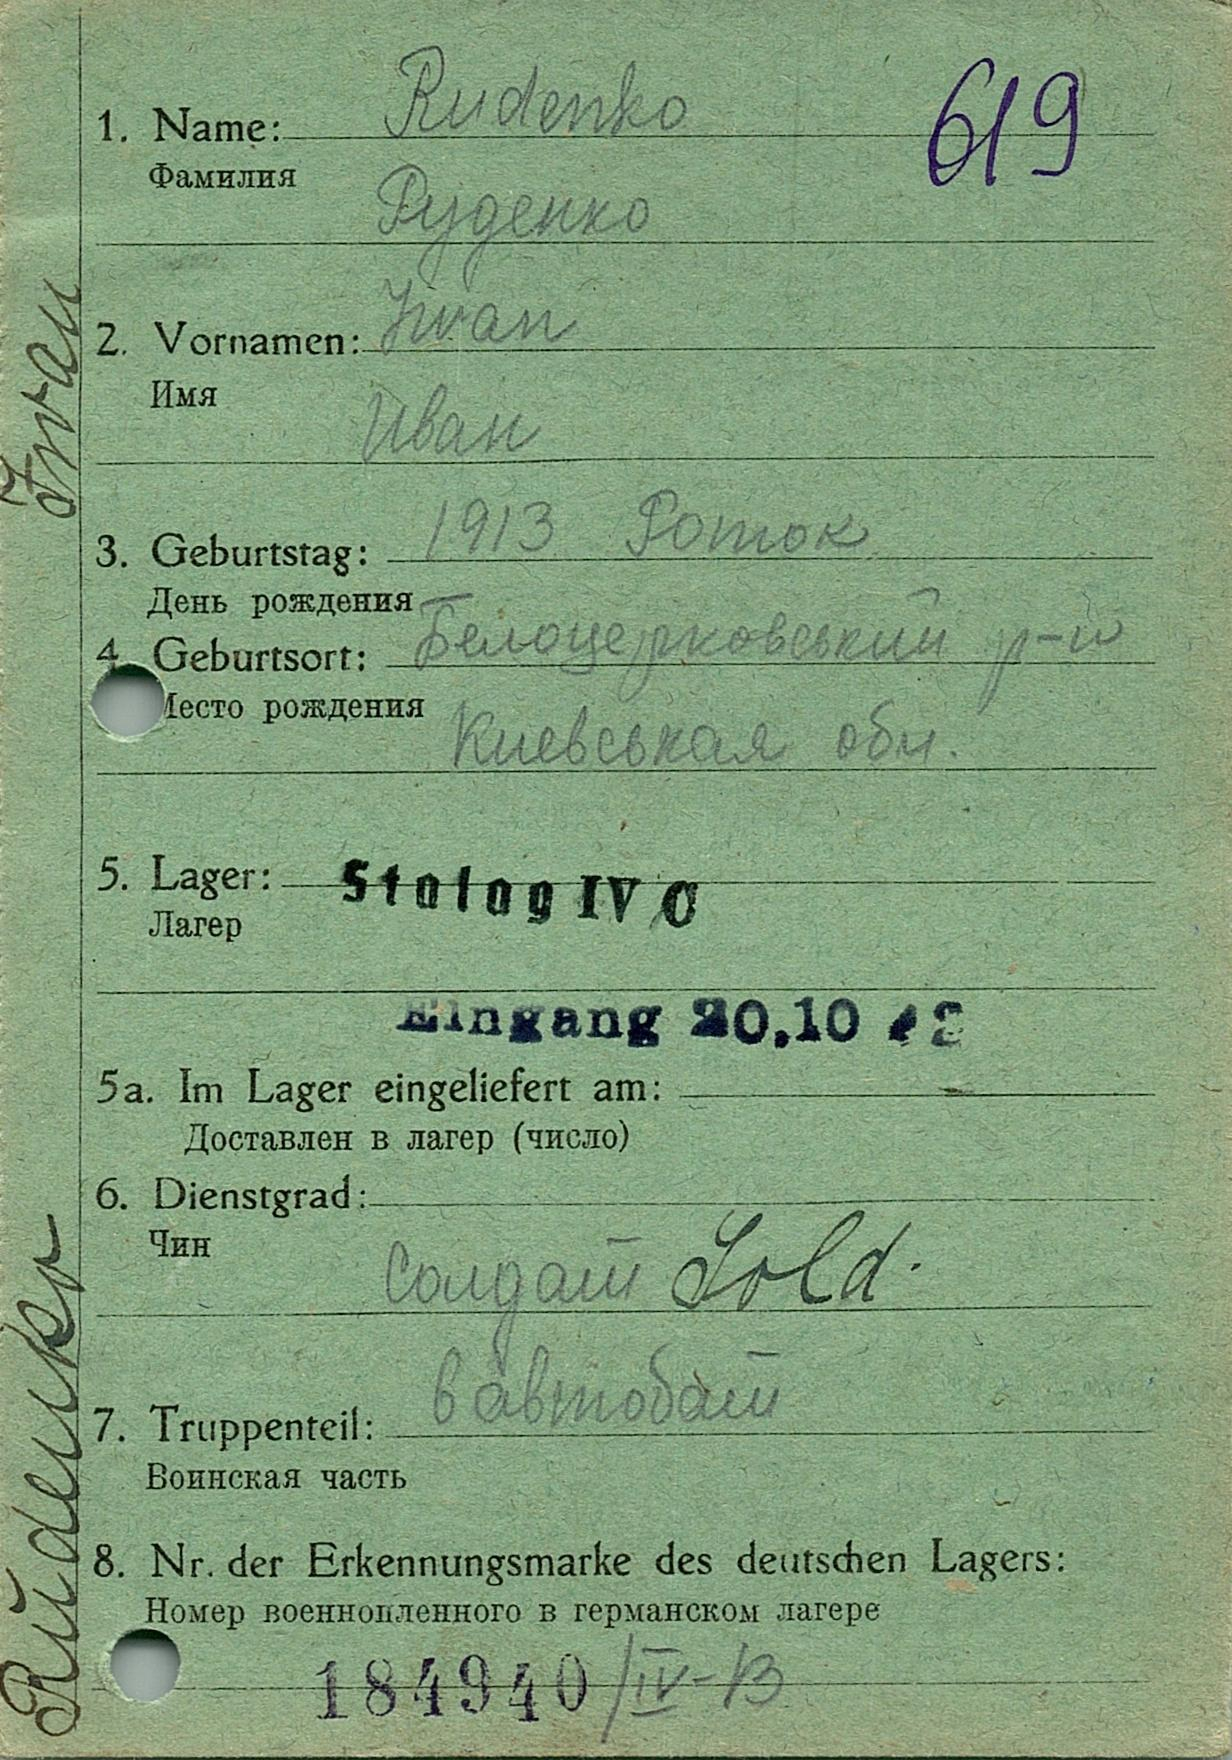 619
1. Name: Rudenko
Фамилия
Руденко
2. Vornamen: Iwan
Имя
Иван
3. Geburtstag: 1913 Роток
День рождения
4. Geburtsort: Белоцерковський р-н
Место рождения
Киевськая обл.
5. Lager: Stalag IV C
Лагер
Eingang 20.10 42
5a. Im Lager eingeliefert am:
Доставлен в лагер (число)
6. Dienstgrad:
Чин
Солдат Sold.
7. Truppenteil: автобат
Воинская часть
8. Nr. der Erkennungsmarke des deutschen Lagers:
Номер военнопленного в германском лагере
184940/IV-B
Rudenko Iwan